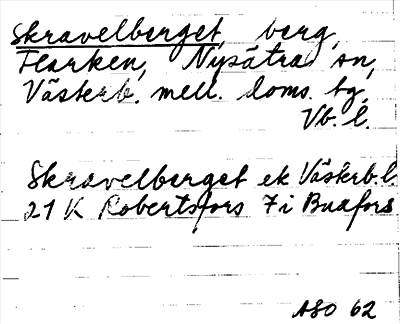 Skravelberget, berg,
Flarken, Nysätra sn,
Västerb. mell. doms. tg,
Vb. l.
Skravelberget ek Västerb. l.
21 K Robertsfors 7 i Buafors
ASO 62